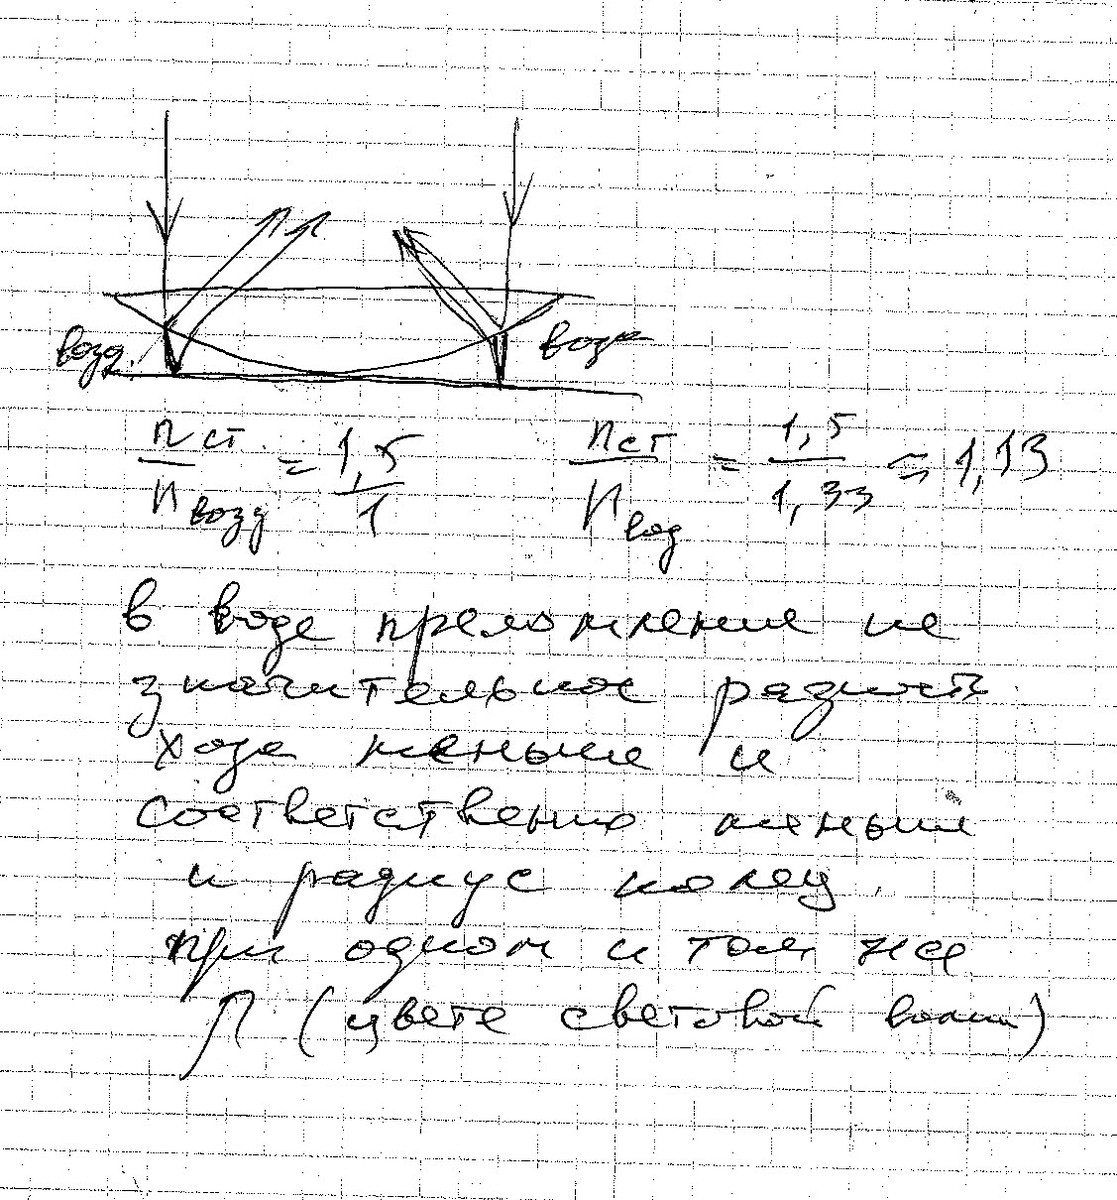 возд. вода
n ст. / n возд = 1,5 / 1 n ст / n вод = 1,5 / 1,33 ≈ 1,13
в воде преломление не
значительное разность
хода меньше и
соответственно меньше
и радиус колец
при одном и том же
λ (цвете световой волны)